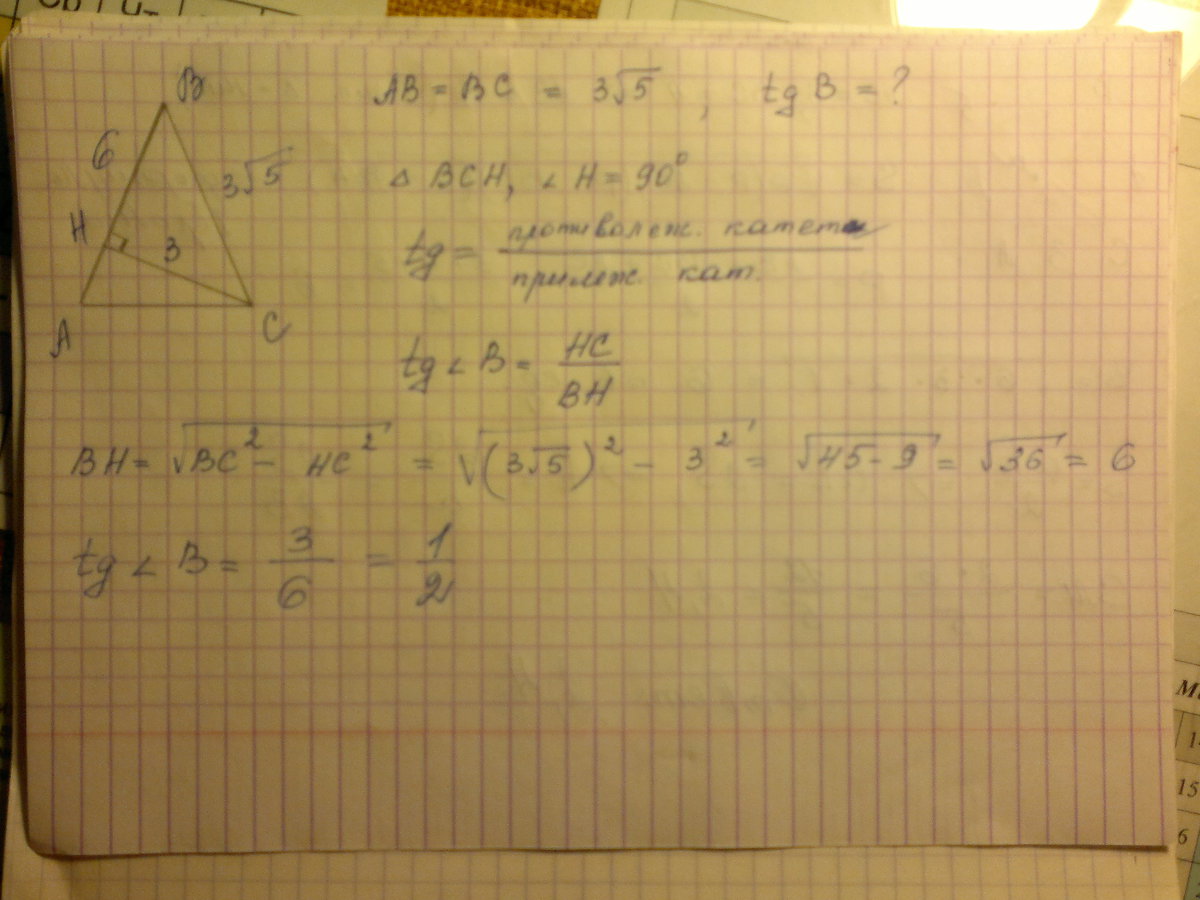 Ср Чт
B
6
3√5
H
3
A
C
AB = BC = 3√5 , tg B = ?
△ BCH, ∠ H = 90°
tg = противолеж. катет / прилеж. кат.
tg ∠ B = HC / BH
BH = √(BC² - HC²) = √((3√5)² - 3²) = √(45 - 9) = √36 = 6
tg ∠ B = 3/6 = 1/2
15
6